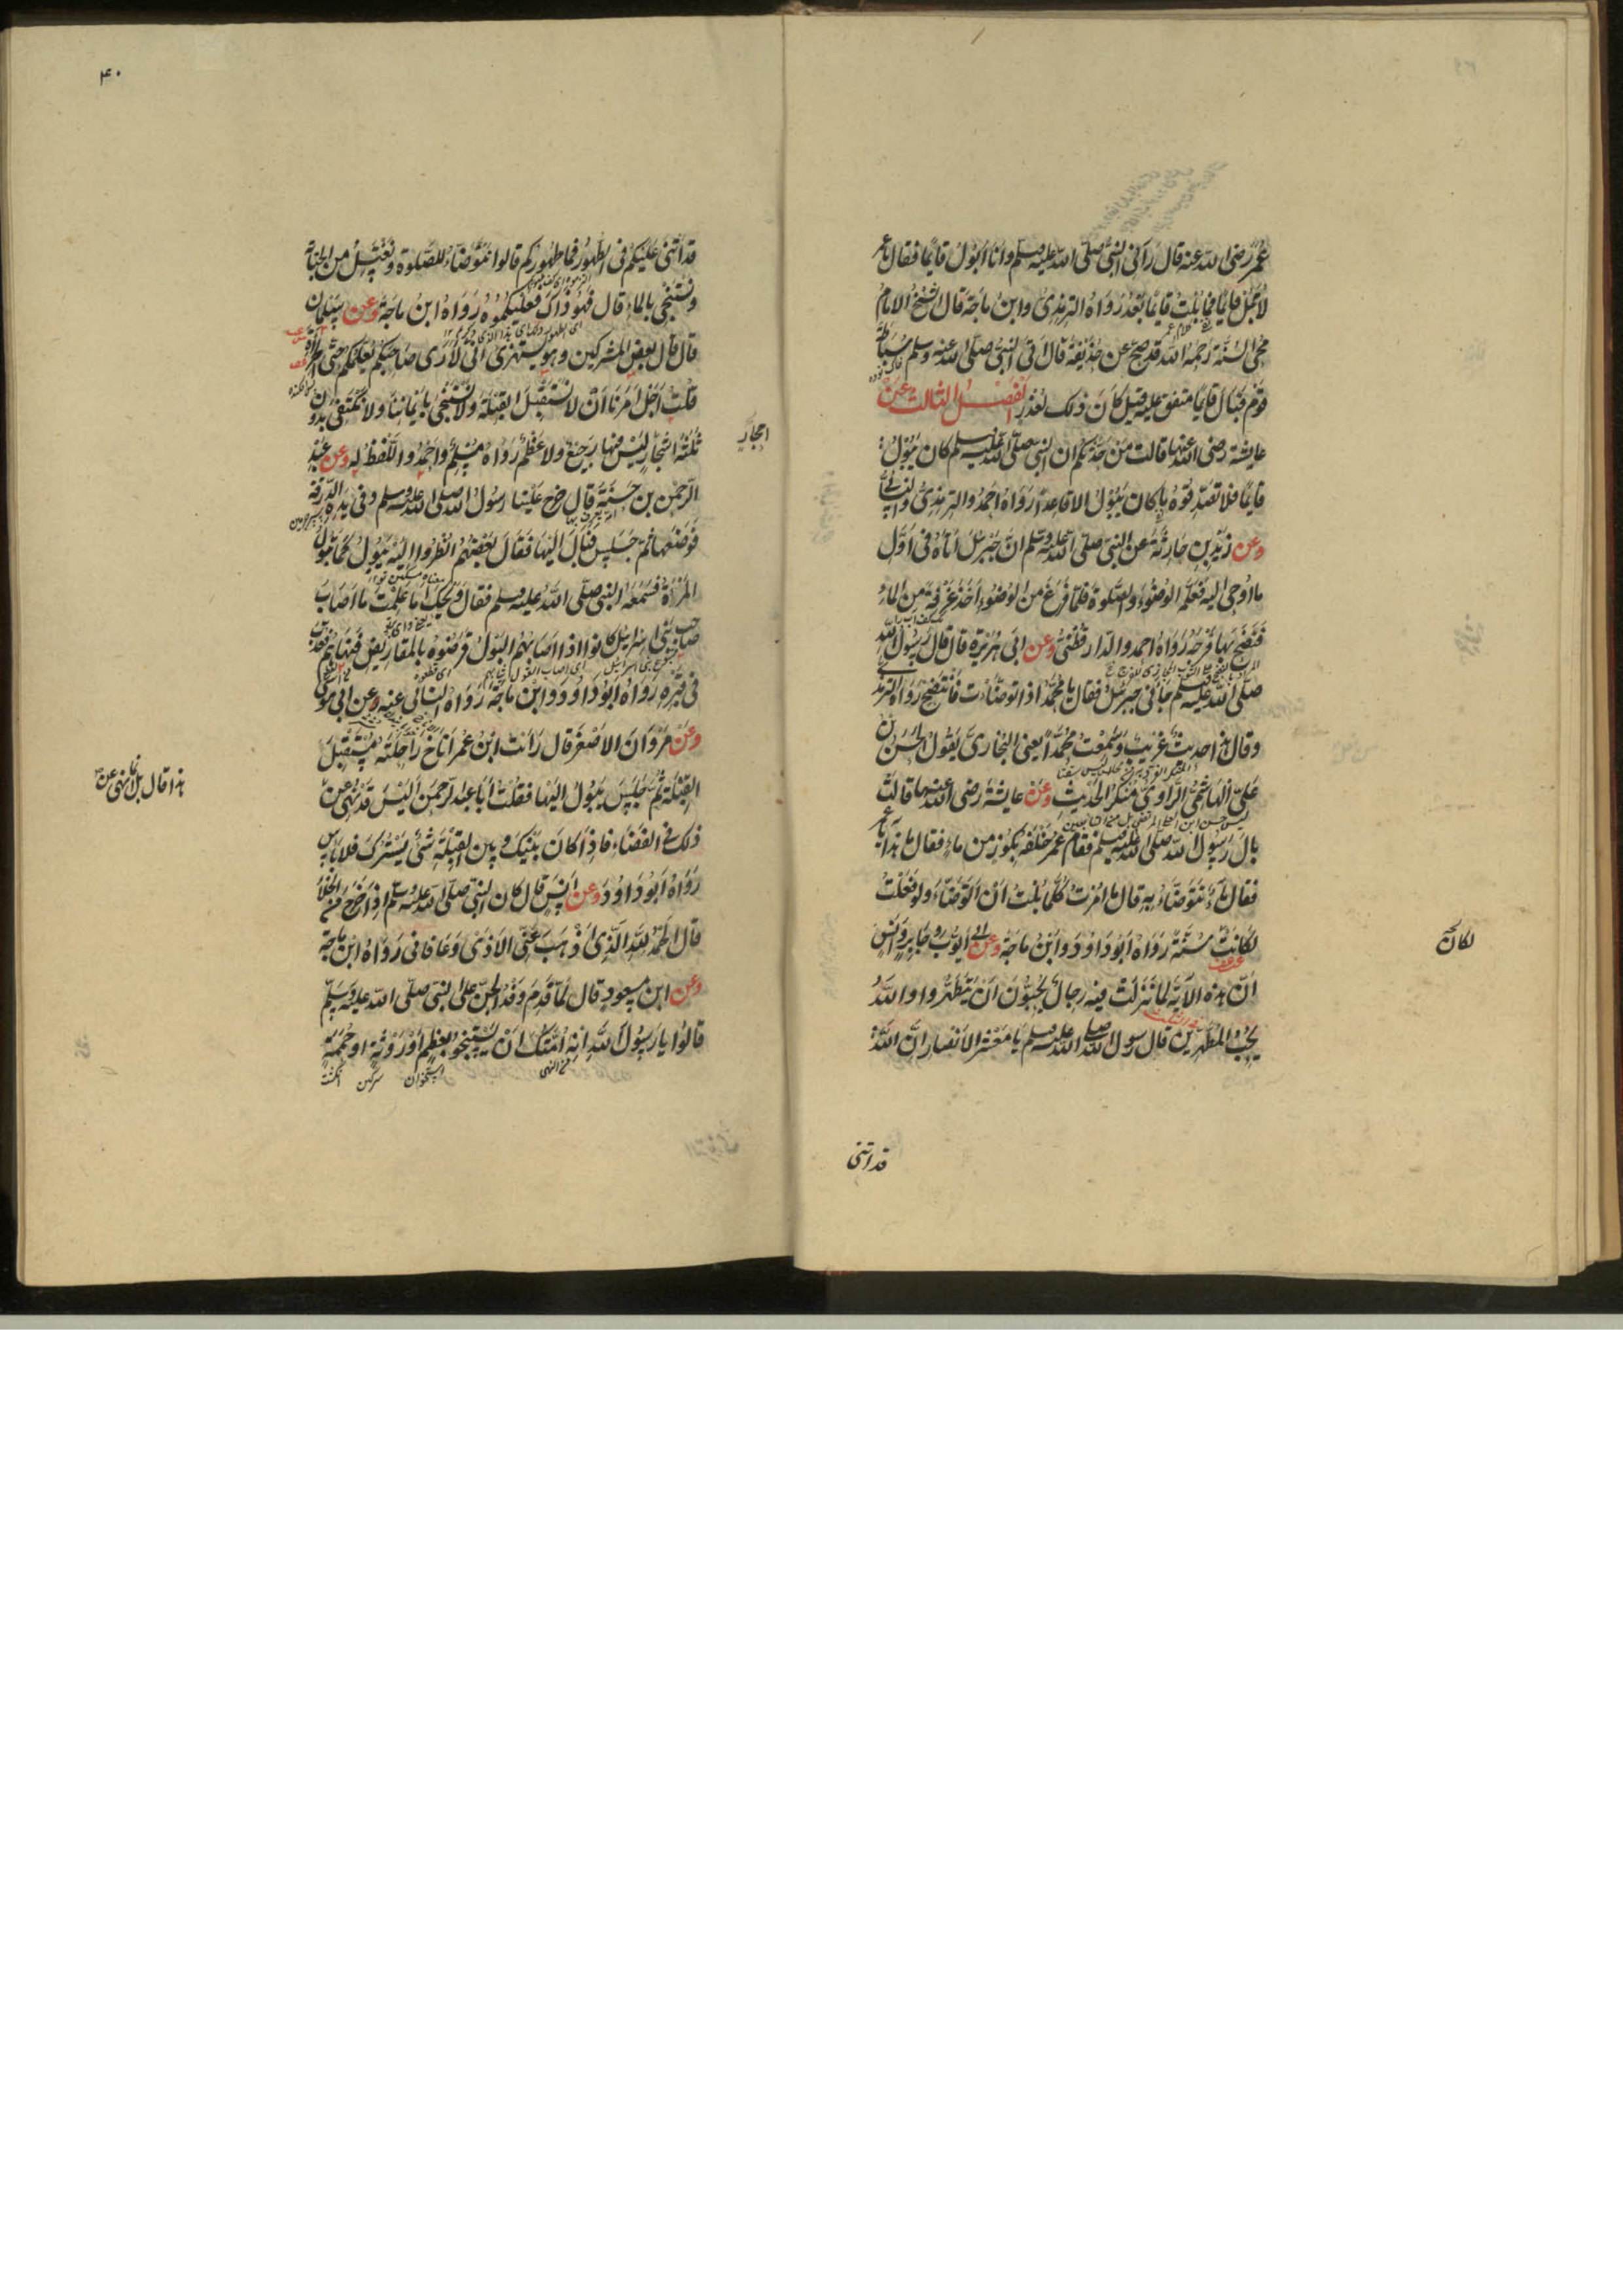 عمر رضی الله عنه قال رآنی النبی صلی الله علیه وسلم وانا ابول قایما فقال یا عمر
لا تبل قایما فما بلت قایما بعد رواه الترمذی وابن ماجة قال الشیخ الامام
محی السنة رحمه الله قد صح عن حذیفة قال اتی النبی صلی الله علیه وسلم سباطة
قوم فبال قایما متفق علیه قیل کان ذلک لعذر الفصل الثالث عن
عایشة رضی الله عنها قالت من حدثکم ان النبی صلی الله علیه وسلم کان یبول
قایما فلا تصدقوه ما کان یبول الا قاعدا رواه احمد والترمذی والنسائی
وعن زید بن حارثة عن النبی صلی الله علیه وسلم ان جبریل اتاه فی اول
ما اوحی الیه فعلمه الوضوء والصلوة فلما فرغ من الوضوء اخذ غرفة من الماء
فنضح بها فرجه رواه احمد والدارقطنی وعن ابی هریرة قال قال رسول الله
صلی الله علیه وسلم جاءنی جبریل فقال یا محمد اذا توضات فانتضح رواه الترمذی
وقال هذا حدیث غریب وسمعت محمدا یعنی البخاری یقول الحسن بن
علی الهاشمی الراوی منکر الحدیث وعن عایشة رضی الله عنها قالت
بال رسول الله صلی الله علیه وسلم فقام عمر خلفه بکوز من ماء فقال ما هذا یا عمر
فقال ماء تتوضاء به قال ما امرت کلما بلت ان اتوضاء ولو فعلت
لکانت سنة رواه ابو داود وابن ماجة وعن ابی ایوب وجابر وانس
ان هذه الایة لما نزلت فیه رجال یحبون ان یتطهروا والله
یحب المطهرین قال رسول الله صلی الله علیه وسلم یا معشر الانصار ان الله
لکان
قد اثنی
۴۰
قد اثنی علیکم فی الطهور فما طهورکم قالوا نتوضاء للصلوة ونغتسل من الجنابة
ونستنجی بالماء قال فهو ذاک فعلیکموه رواه ابن ماجة وعن سلمان
قال قال بعض المشرکین وهو یستهزئ انی لاری صاحبکم یعلمکم حتی الخراءة
قلت اجل امرنا ان لا نستقبل القبلة ولا نستنجی بایماننا ولا نکتفی بدون
ثلثة احجار لیس فیها رجیع ولا عظم رواه مسلم واحمد واللفظ له وعن عبد
الرحمن بن حسنة قال خرج علینا رسول الله صلی الله علیه وسلم وفی یده الدرقة
فوضعها ثم جلس فبال الیها فقال بعضهم انظروا الیه یبول کما تبول
المراة فسمعه النبی صلی الله علیه وسلم فقال ویحک اما علمت ما اصاب
صاحب بنی اسرائیل کانوا اذا اصابهم البول قرضوه بالمقاریض فنهاهم فعذب
فی قبره رواه ابو داود وابن ماجة رواه النسائی عنه وعن ابی موسی
وعن مروان الاصغر قال رایت ابن عمر اناخ راحلته مستقبل
القبلة ثم جلس یبول الیها فقلت یا ابا عبد الرحمن الیس قد نهی عن
ذلک فی الفضاء فاذا کان بینک وبین القبلة شئ یسترک فلا باس
رواه ابو داود وعن انس قال کان النبی صلی الله علیه وسلم اذا خرج من الخلاء
قال الحمد لله الذی اذهب عنی الاذی وعافانی رواه ابن ماجة
وعن ابن مسعود قال لما قدم وفد الجن علی النبی صلی الله علیه وسلم
قالوا یا رسول الله انه امتک ان یستنجوا بعظم او روثة او حممة
استخوان سرکین انکشت
احجار
هذا قال بل انما نهی عن